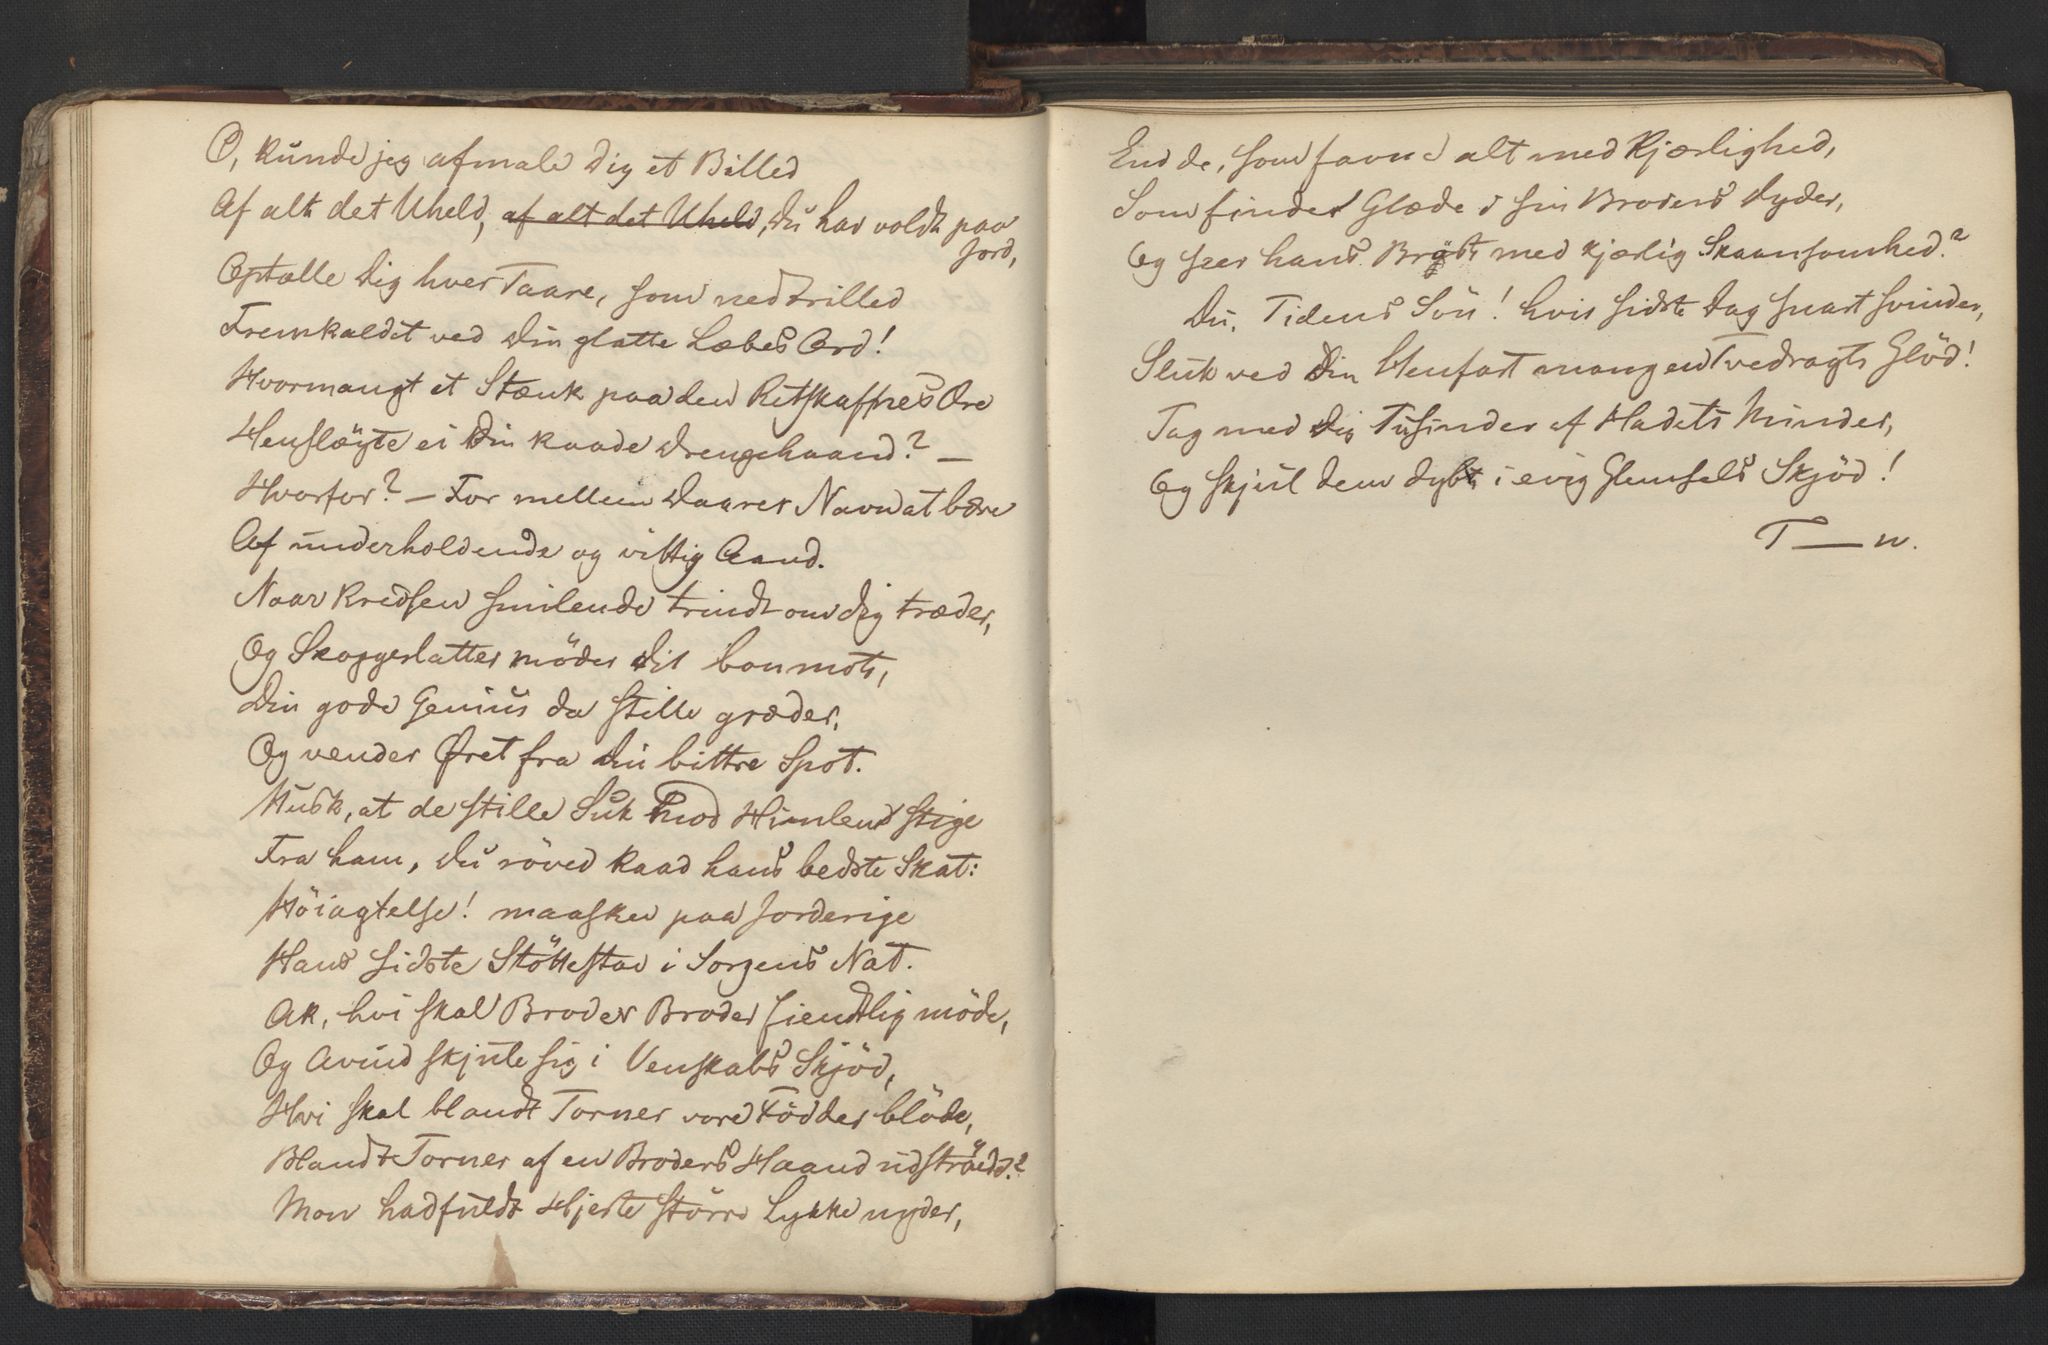 O, kunde jeg afmale Dig et Billed
Af alt det Uheld, af alt det Uheld, Du har voldt paa
Jord,
Optælle Dig hver Taare, som nedtrilled
Fremkaldet ved Din glatte Læbes Ord!
Hvormangt et Stænk paa den Retskaffnes Ære
Henslængte ei Din kaade Drengehaand? —
Hvorfor? — For mellem Daarer Navn at bære
Af underholdende og vittig Aand.
Naar Kredsen smilende trindt om dig træder,
Og Skoggerlatter möder dit bonmots,
Din gode Genius da stille græder,
Og vender Øret fra Din bittre Spot.
Husk, at de stille Suk mod Himlen stige
Fra ham, Du röved kaad hans bedste Skat:
Höiagtelse! maaskee paa Jorderige
Hans sidste Stöttestav i Sorgens Nat.
Ak, hvi skal Broder Broder fiendtlig möde,
Og Avind skjule sig i Venskabs Skjöd,
Hvi skal blandt Torner vore Födder blöde,
Blandt Torner af en Broders Haand udströed?
Mon hadfuldt Hjerte större Lykke nyder,
End de, som favne alt med Kjærlighed,
Som finder Glæde i sin Broders Dyder,
Og seer hans Bröst med kjærlig Skaansomhed?
Du, Tidens Sön! hvis sidste Dag snart svinder,
Sluk ved Din Henfart mangen Tvedragts Glöd!
Tag med Dig Tusinder af Hadets Minder,
Og skjul dem dybt i evig Glemsels Skjöd!
T — n.